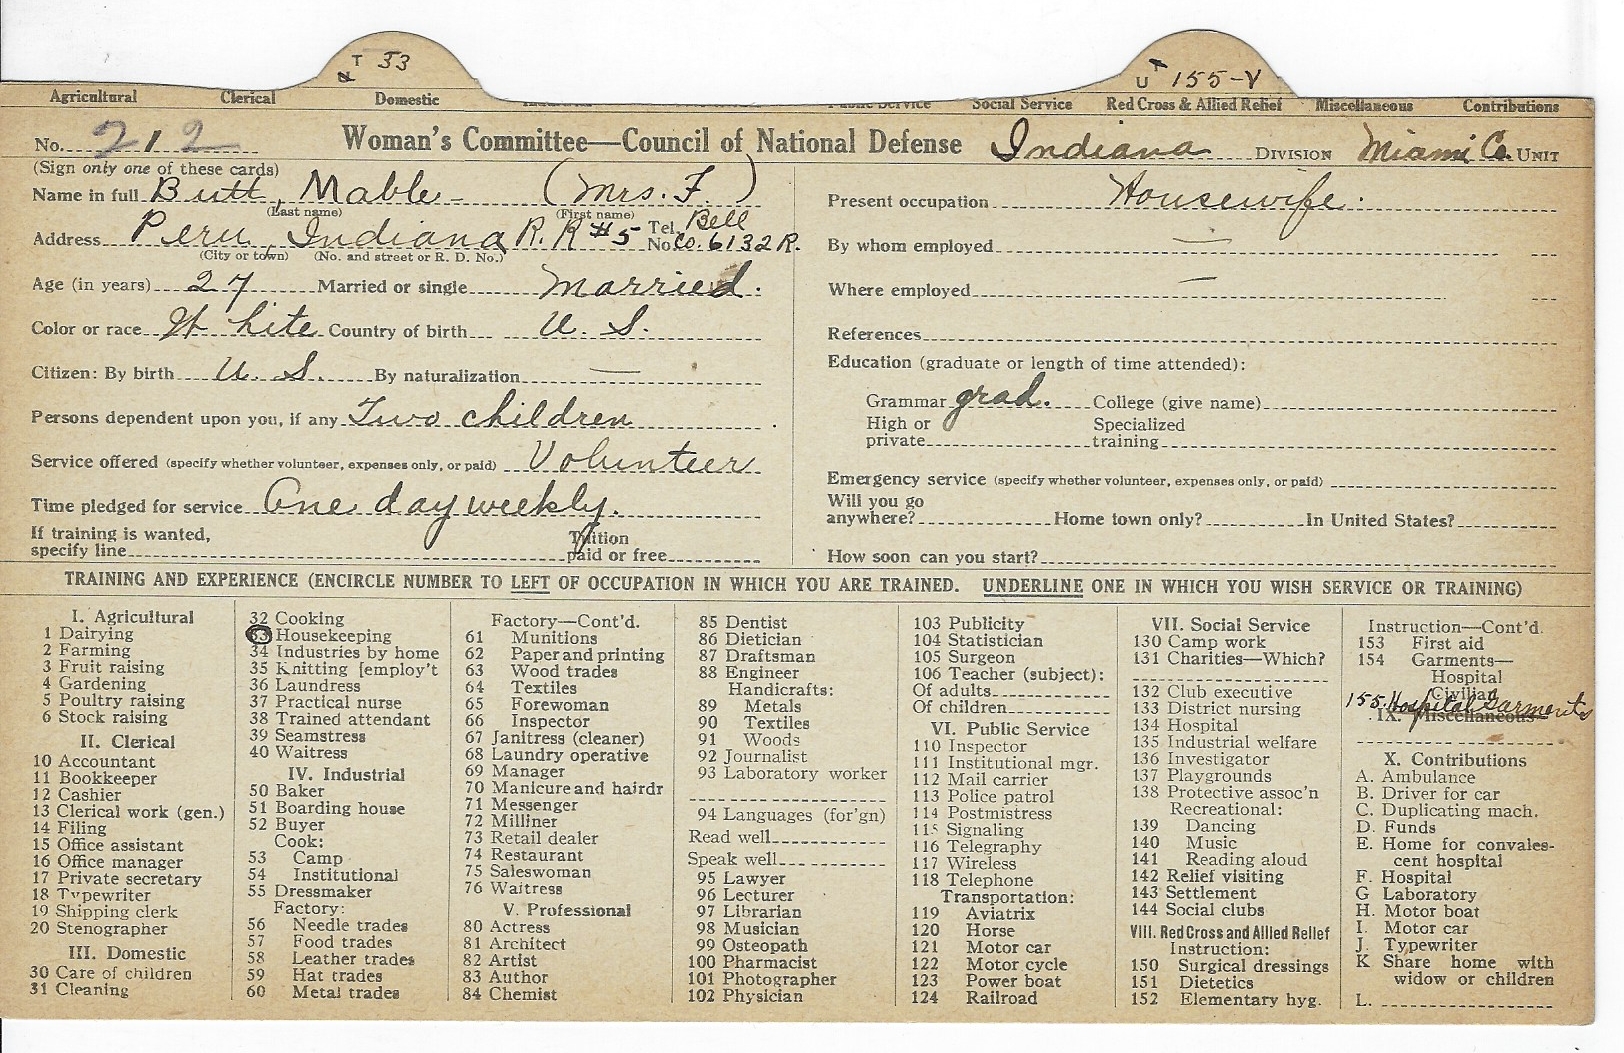 T 33
U 155-V
Agricultural Clerical Domestic Public Service Social Service Red Cross & Allied Relief Miscellaneous Contributions
No. 212 Woman's Committee—Council of National Defense Indiana DIVISION Miami Co. UNIT
(Sign only one of these cards)
Name in full Butt, Mable (Mrs. F.)
(Last name) (First name)
Address Peru, Indiana R. R #5 Tel. No. Bell Co. 6132 R.
(City or town) (No. and street or R. D. No.)
Age (in years) 27 Married or single Married.
Color or race White Country of birth U. S.
Citizen: By birth U. S. By naturalization —
Persons dependent upon you, if any Two children
Service offered (specify whether volunteer, expenses only, or paid) Volunteer
Time pledged for service One day weekly.
If training is wanted,
specify line Tuition paid or free
Present occupation Housewife.
By whom employed —
Where employed —
References
Education (graduate or length of time attended):
Grammar grad. College (give name)
High or private Specialized training
Emergency service (specify whether volunteer, expenses only, or paid)
Will you go
anywhere? Home town only? In United States?
How soon can you start?
TRAINING AND EXPERIENCE (ENCIRCLE NUMBER TO LEFT OF OCCUPATION IN WHICH YOU ARE TRAINED. UNDERLINE ONE IN WHICH YOU WISH SERVICE OR TRAINING)
I. Agricultural
1 Dairying
2 Farming
3 Fruit raising
4 Gardening
5 Poultry raising
6 Stock raising
II. Clerical
10 Accountant
11 Bookkeeper
12 Cashier
13 Clerical work (gen.)
14 Filing
15 Office assistant
16 Office manager
17 Private secretary
18 Typewriter
19 Shipping clerk
20 Stenographer
III. Domestic
30 Care of children
31 Cleaning
32 Cooking
33 Housekeeping
34 Industries by home
35 Knitting [employ't
36 Laundress
37 Practical nurse
38 Trained attendant
39 Seamstress
40 Waitress
IV. Industrial
50 Baker
51 Boarding house
52 Buyer
Cook:
53 Camp
54 Institutional
55 Dressmaker
Factory:
56 Needle trades
57 Food trades
58 Leather trades
59 Hat trades
60 Metal trades
Factory—Cont'd.
61 Munitions
62 Paper and printing
63 Wood trades
64 Textiles
65 Forewoman
66 Inspector
67 Janitress (cleaner)
68 Laundry operative
69 Manager
70 Manicure and hairdr
71 Messenger
72 Milliner
73 Retail dealer
74 Restaurant
75 Saleswoman
76 Waitress
V. Professional
80 Actress
81 Architect
82 Artist
83 Author
84 Chemist
85 Dentist
86 Dietician
87 Draftsman
88 Engineer
Handicrafts:
89 Metals
90 Textiles
91 Woods
92 Journalist
93 Laboratory worker
94 Languages (for'gn)
Read well
Speak well
95 Lawyer
96 Lecturer
97 Librarian
98 Musician
99 Osteopath
100 Pharmacist
101 Photographer
102 Physician
103 Publicity
104 Statistician
105 Surgeon
106 Teacher (subject):
Of adults
Of children
VI. Public Service
110 Inspector
111 Institutional mgr.
112 Mail carrier
113 Police patrol
114 Postmistress
115 Signaling
116 Telegraphy
117 Wireless
118 Telephone
Transportation:
119 Aviatrix
120 Horse
121 Motor car
122 Motor cycle
123 Power boat
124 Railroad
VII. Social Service
130 Camp work
131 Charities—Which?
132 Club executive
133 District nursing
134 Hospital
135 Industrial welfare
136 Investigator
137 Playgrounds
138 Protective assoc'n
Recreational:
139 Dancing
140 Music
141 Reading aloud
142 Relief visiting
143 Settlement
144 Social clubs
VIII. Red Cross and Allied Relief
Instruction:
150 Surgical dressings
151 Dietetics
152 Elementary hyg.
Instruction—Cont'd.
153 First aid
154 Garments—
Hospital
Civilian
155. Hospital Garments
IX. Miscellaneous
X. Contributions
A. Ambulance
B. Driver for car
C. Duplicating mach.
D. Funds
E. Home for convales-
cent hospital
F. Hospital
G Laboratory
H. Motor boat
I. Motor car
J. Typewriter
K Share home with
widow or children
L.